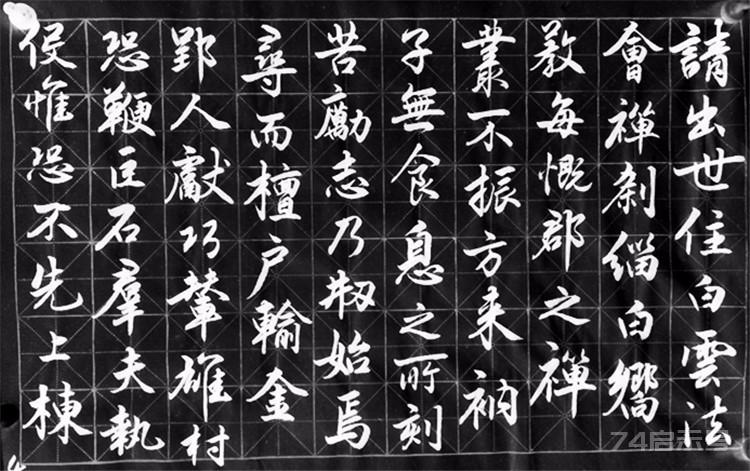 請出世住白雲法
會禪刹緇白嚮
教每慨郡之禪
叢不振方来衲
子無食息之所刻
苦勵志乃刱始焉
尋而檀户輸金
郢人獻巧輦雄村
恐鞭巨石羣夫執
侯惟恐不先上棟